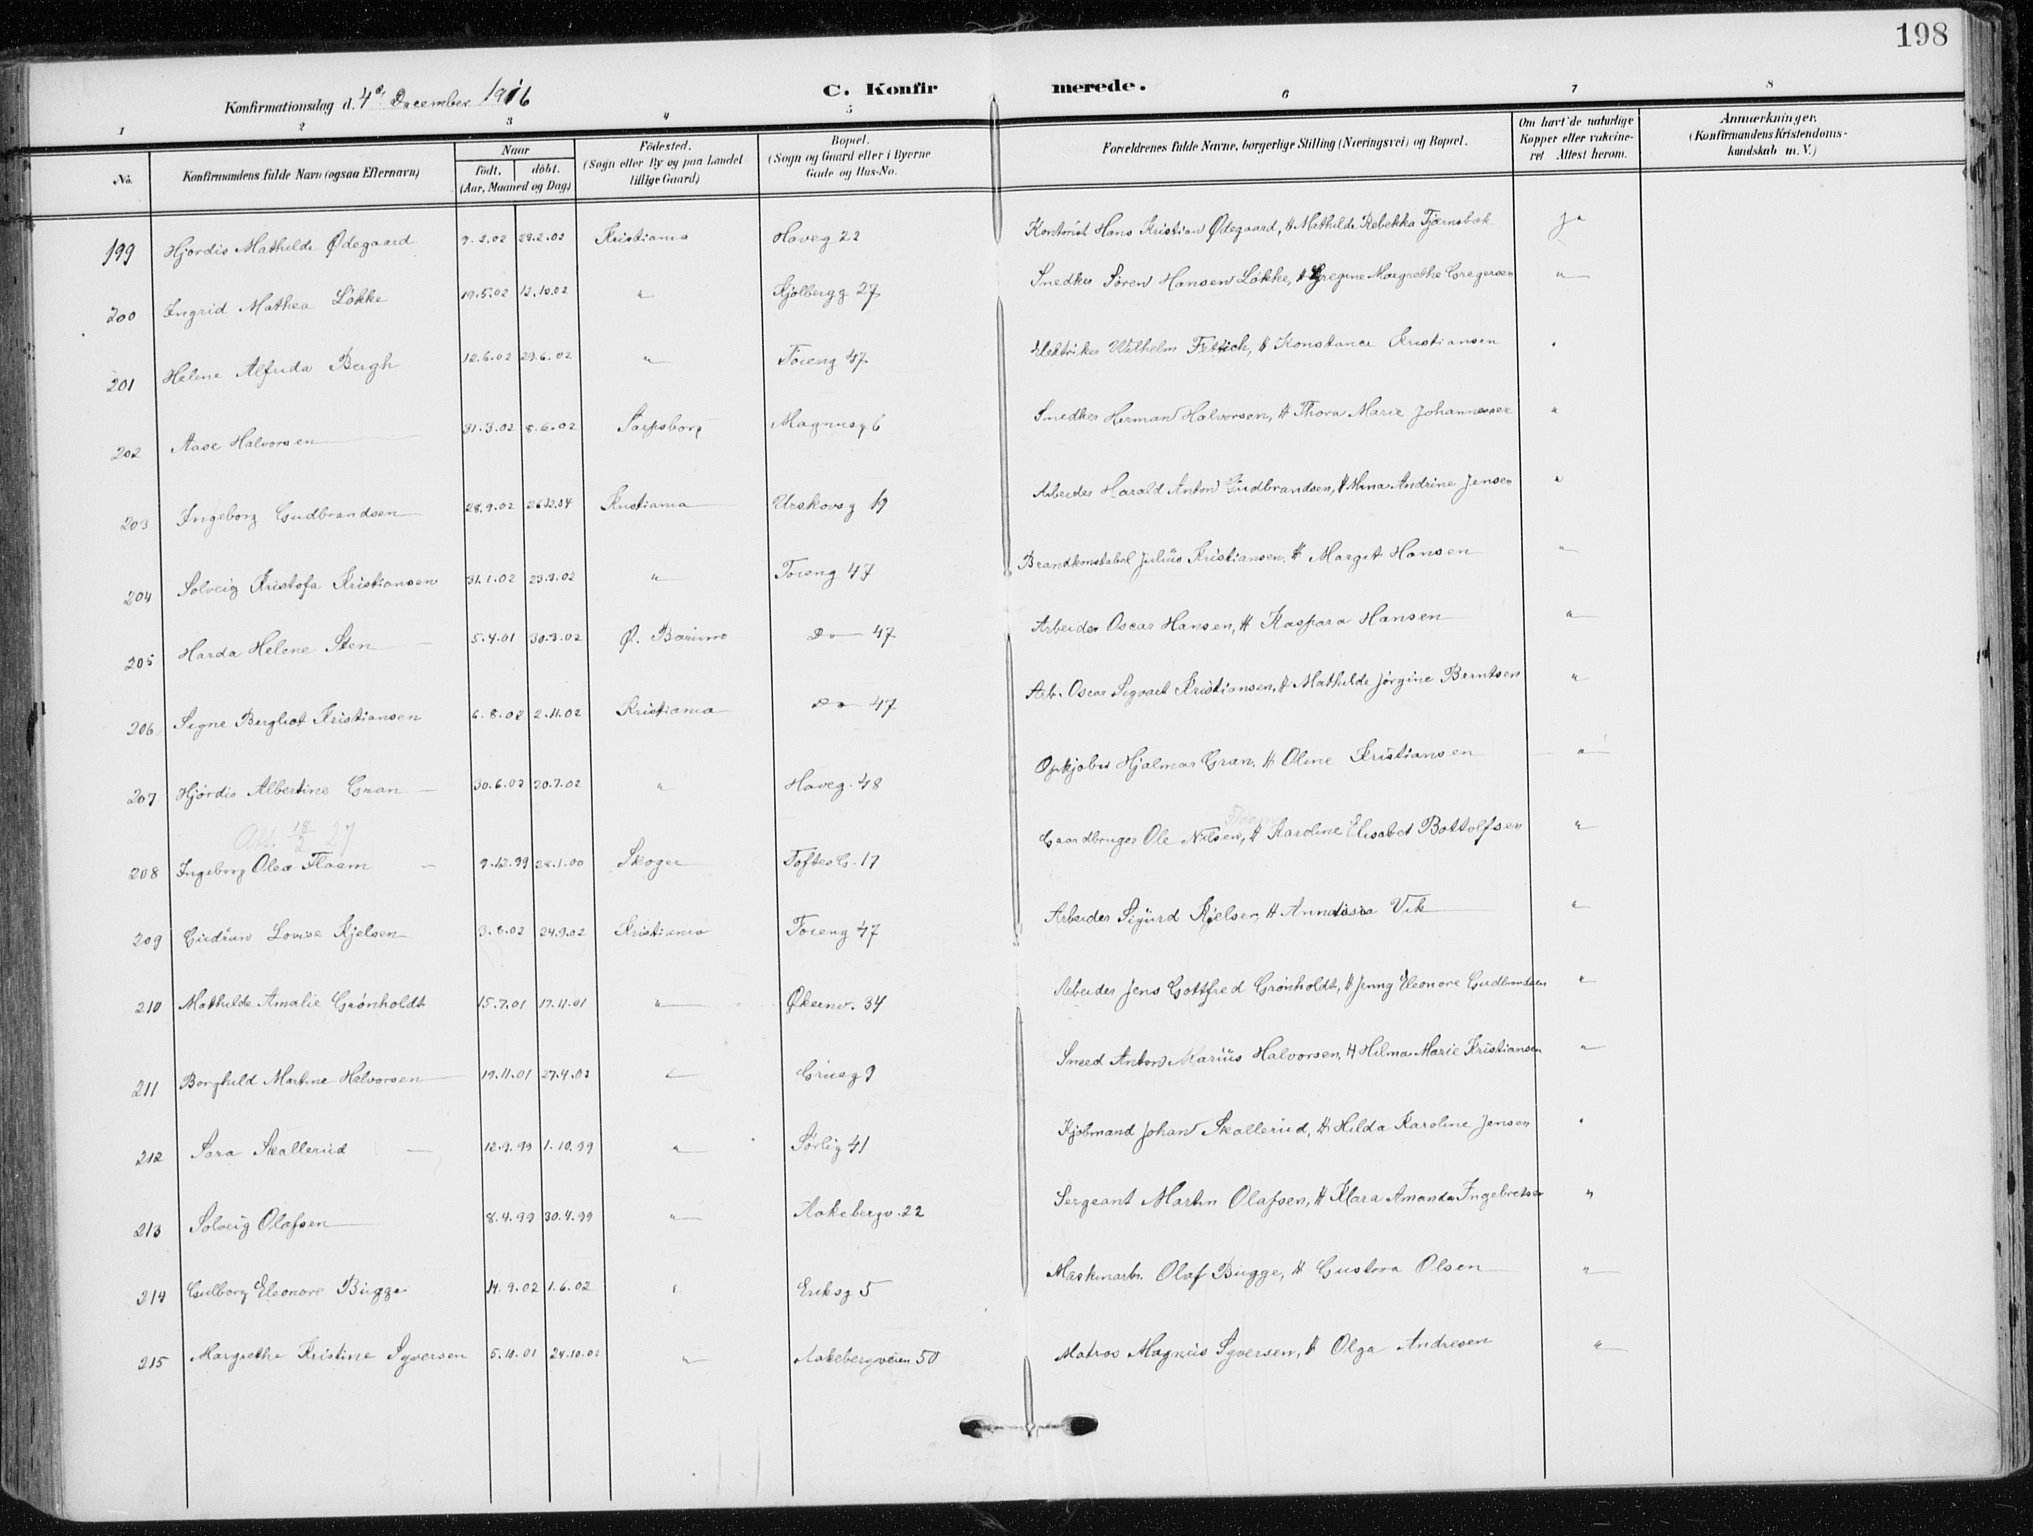 198
C. Konfirmerede.
Konfirmationsdag d. 4de December 1916
1 2 3 4 5 6 7 8
No. Konfirmandens fulde Navn (ogsaa Efternavn) Naar født, døbt. (Aar, Maaned og Dag) Fødested. (Sogn eller By og paa Landet tillige Gaard) Bopæl. (Sogn og Gaard eller i Byerne Gade og Hus-No. Forældrenes fulde Navne, borgerlige Stilling (Næringsvei) og Bopæl. Om havt de naturlige Kopper eller vakcineret Attest herom. Anmærkninger. (Konfirmandens Kristendomskundskab m. V.)
199 Hjørdis Mathilde Ødegaard 9.2.02 29.2.02 Kristiania Haveg 22 Kontorist Hans Kristian Ødegaard, H Mathilde Rebekka Tjærnsbak Ja
200 Ingrid Mathea Løkke 19.5.02 12.10.02 " Kjølbergg 27 Snedker Søren Hansen Løkke, H Margrethe Gregersen "
201 Helene Alfrida Bergh 12.6.02 29.6.02 " Tøieng 47 Elektriker Wilhelm H Konstance Kristiansen "
202 Aase Halvorsen 31.3.02 8.6.02 Sarpsborg Magnusg 6 Smedker Herman Halvorsen, H Thora Marie Johannessen "
203 Ingeborg Gudbrandsen 28.9.02 26.12.04 Kristiania Urskovsg 19 Arbeider Harald Anton Gudbrandsen, H Mina Andrine Jensen "
204 Solveig Kristofa Kristiansen 31.1.02 23.3.02 " Tøieng 47 Brandkonstabel Julius Kristiansen, H Margit Hansen "
205 Harda Helene Sten 5.4.01 30.3.02 Ø. Bærum Do 47 Arbeider Oscar Hansen, H Kaspara Hansen "
206 Signe Bergliot Kristiansen 6.8.02 2.11.02 Kristiania Do 47 Arb. Oscar Sigvart Kristiansen, H Mathilde Jørgine Berntsen "
207 Hjørdis Albertine Gran 30.6.02 20.7.02 " Haveg. 48 Opkjøber Hjalmar Gran, H Oline Kristiansen "
Att. 18/2 27
208 Ingeborg Olea Flaam 9.12.99 28.1.00 Skoger Toftes G. 17 Gaardbruger Ole Nilsen, Flaam H Karoline Elisabet Bottolfsen "
209 Gudrun Lovise Kjelsen 3.8.02 24.9.02 Kristiania Tøieng 47 Arbeider Sigurd Kjelsen, H Vik "
210 Mathilde Amalie Grønholdt 15.7.01 17.11.01 " Økernv. 34 Arbeider Jens Gottfred Grønholdt, H Jenny Eleonore Gudbrandsen "
211 Borghild Martine Halvorsen 19.11.01 27.4.02 " Grueg 9 Smed Anton Marius Halvorsen, H Hilma Marie Kristiansen "
212 Sara Skallerud 12.9.99 1.10.99 " Sørlig 41 Kjøbmand Johan Skallerud, H Hilda Karoline Jensen "
213 Solveig Olafsen 8.4.99 30.4.99 " Aakebergv. 22 Sergeant Martin Olafsen, H Klara Amanda Ingebretsen "
214 Gulborg Eleonore Bugge 14.9.02 1.6.02 " Eriksg 5 Maskinarb. Olaf Bugge, H Gustava Olsen "
215 Margrethe Kristine Syversen 5.10.01 24.10.01 " Aakebergveien 50 Matros Magnus Syversen, H Olga Andresen "